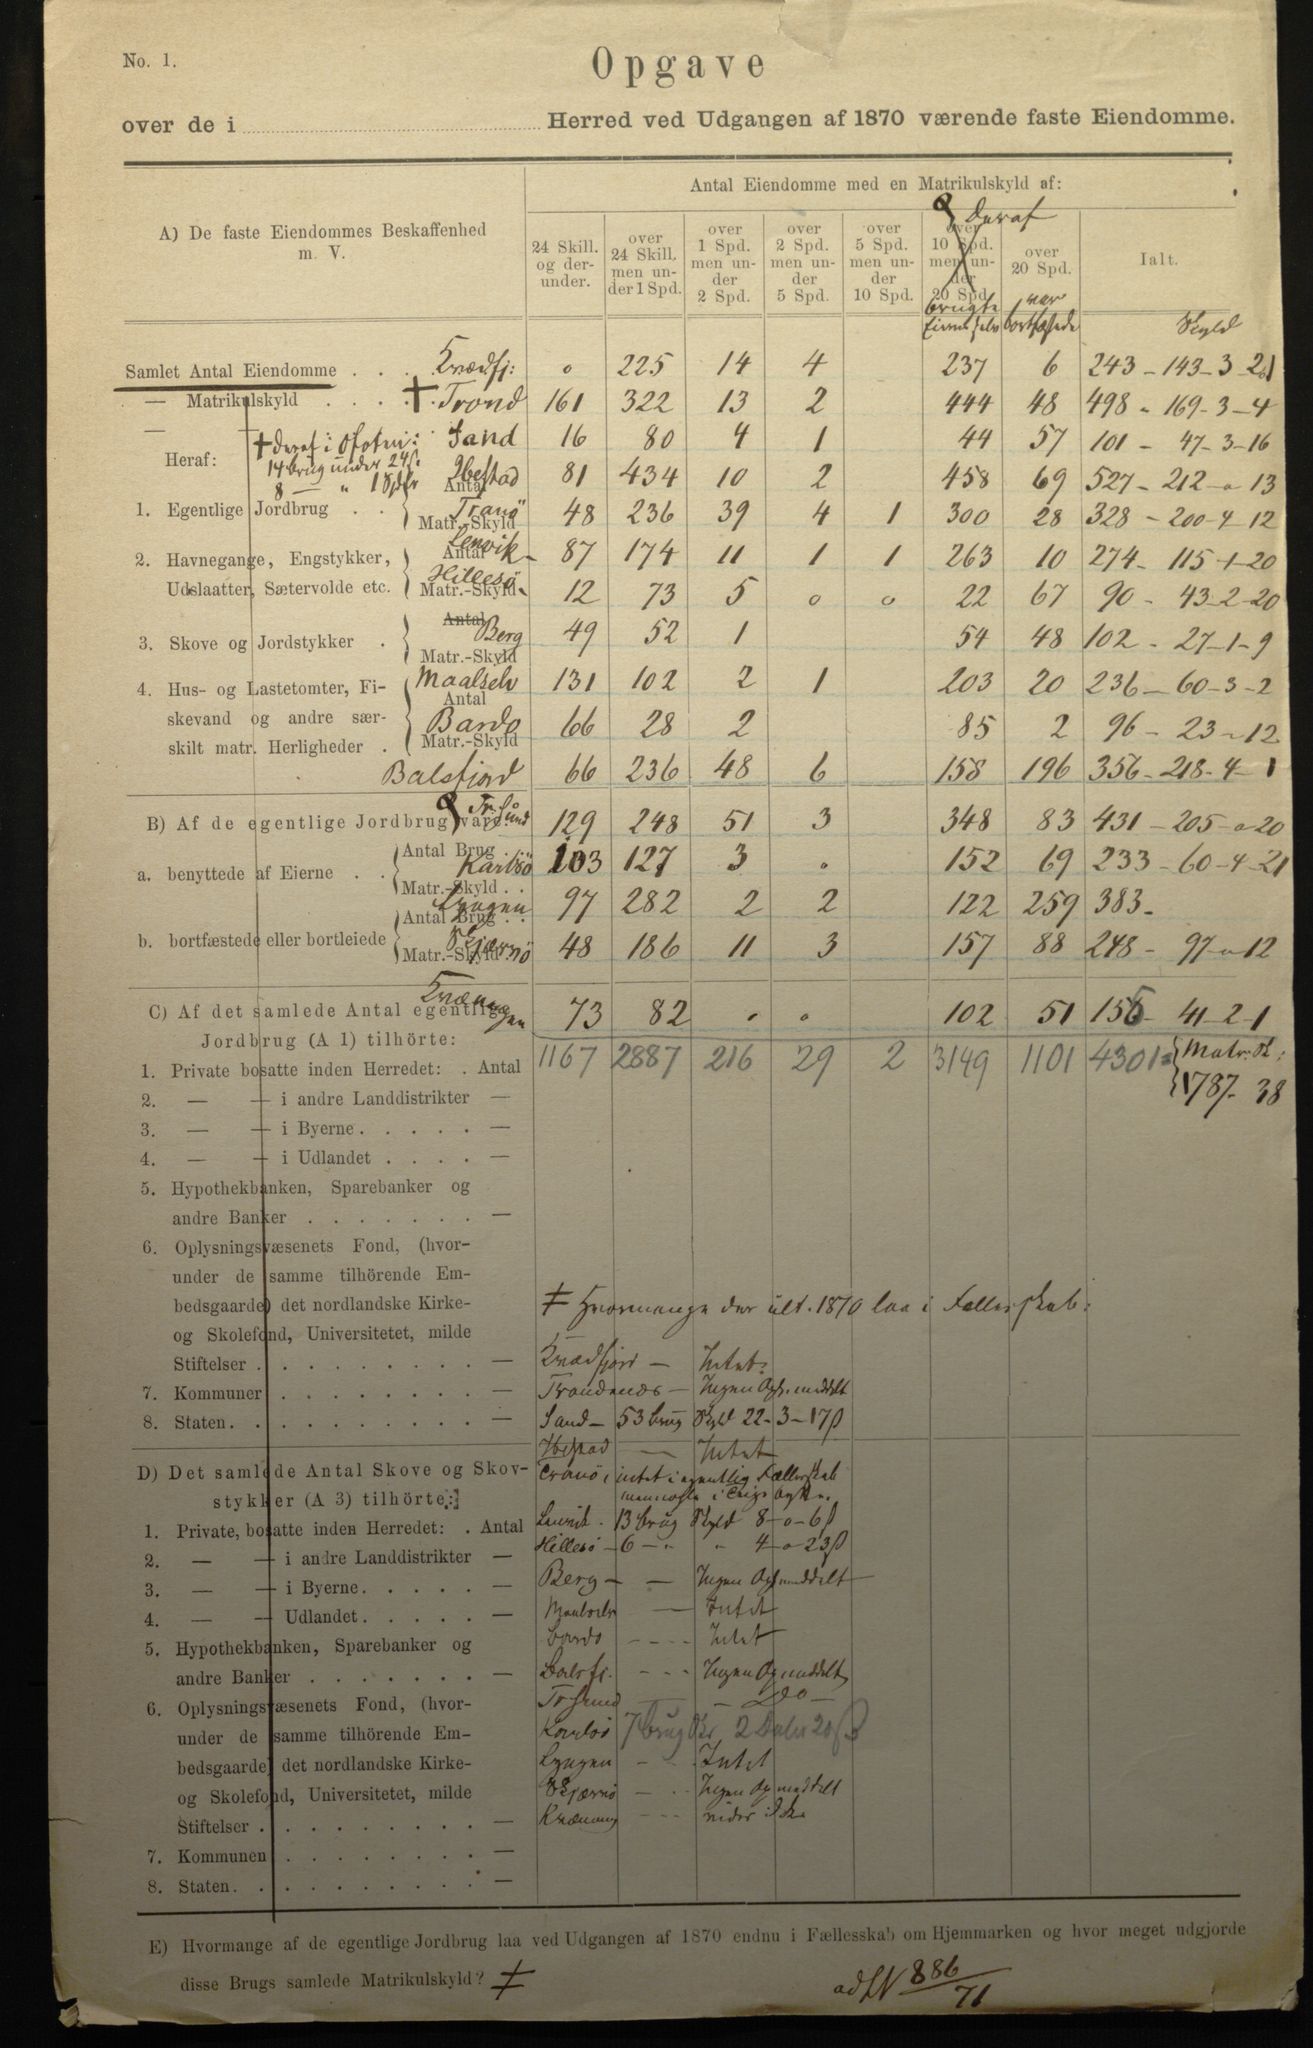 No. 1.
Opgave
over de i Herred ved Udgangen af 1870 værende faste Eiendomme.
A) De faste Eiendommes Beskaffenhed
m. V.
Antal Eiendomme med en Matrikulskyld af:
24 Skill. og der- under.
over 24 Skill. men un- der 1 Spd.
over 1 Spd. men un- der 2 Spd.
over 2 Spd. men un- der 5 Spd.
over 5 Spd. men un- der 10 Spd.
over 10 Spd. men un- der 20 Spd.
over 20 Spd.
Ialt.
Deraf
brugte Eierne selv
var bortfæstede
Skyld
Samlet Antal Eiendomme . . . Kvædfj: 0 225 14 4 237 6 243 - 143-3-21
— Matrikulskyld . . . . † Trond 161 322 13 2 444 48 498 - 169-3-4
— † deraf i Ofoten: Sand 16 80 4 1 44 57 101 - 47-3-16
Heraf: 14 brug under 24ß.
8 — " 1 Spdlr Ibestad 81 434 10 2 458 69 527 - 212-0-13
Antal
1. Egentlige Jordbrug . . Tranö 48 236 39 4 1 300 28 328 - 200-4-12
Matr.-Skyld
2. Havnegange, Engstykker, Antal Lenvik 87 174 11 1 1 263 10 274 - 115-1-20
Udslaatter, Sætervolde etc. Matr.-Skyld Hillesö 12 73 5 0 0 22 67 90 - 43-2-20
Antal
3. Skove og Jordstykker . Berg 49 52 1 54 48 102 - 27-1-9
Matr.-Skyld
4. Hus- og Lastetomter, Fi- Maalselv 131 102 2 1 203 20 236 - 60-3-2
Antal
skevand og andre sær- Bardo 66 28 2 85 2 96 - 23-0-12
skilt matr. Herligheder . Matr.-Skyld
Balsfjord 66 236 48 6 158 196 356 - 218-4-1
B) Af de egentlige Jordbrug vare: Tr: Sund 129 248 51 3 348 83 431 - 205-0-20
Antal Brug .
a. benyttede af Eierne . . Karlsö 103 127 3 0 152 69 233 - 60-4-21
Matr.-Skyld . .
Antal Brug . . Lyngen 97 282 2 2 122 259 383 -
b. bortfæstede eller bortleiede Matr.-Skyld Skjærvö 48 186 11 3 157 88 248 - 97-0-12
C) Af det samlede Antal egentlige Kvænangen 73 82 0 0 102 51 155 - 41-2-1
Jordbrug (A 1) tilhörte: 1167 2887 216 29 2 3149 1101 4301 = Matr: Sk:
1787- 38
1. Private bosatte inden Herredet: . Antal
2. — — i andre Landdistrikter —
3. — — i Byerne . . . . . —
4. — — i Udlandet . . . . —
5. Hypothekbanken, Sparebanker og
andre Banker . . . . . . . —
6. Oplysningsvæsenets Fond, (hvor-
under de samme tilhörende Em-
bedsgaarde) det nordlandske Kirke-
og Skolefond, Universitetet, milde
Stiftelser . . . . . . . . . —
7. Kommuner . . . . . . . . —
8. Staten . . . . . . . . . . —
≠ Hvormange der ult. 1870 laa i Fællesskab:
Kvædfjord — Intet.
Trondenæs — Ingen Opl. meddelt
Sand — 53 brug Skyld 22-3-17ß
Ibestad — Intet
Tranö, intet i egentlig Fællesskab
Lenvik . 13 brug Skyld 8-0-6ß
Hillesö — 6 — " " 4-0-23ß
Berg — — Ingen Opl meddelt
Maalselv — Intet
Bardo — Intet
Balsfj. — Ingen Op meddelt
Tr Sund — Do —
Karlsö 7 brug Sk. 2 Daler 20ß
Lyngen — Intet
Skjærvö — Ingen Op meddelt
Kvænang — vides ikke
D) Det samlede Antal Skove og Skov-
stykker (A 3) tilhörte:
1. Private, bosatte inden Herredet: . Antal
2. — — i andre Landdistrikter —
3. — — i Byerne . . . . . —
4. — — Udlandet . . . . . —
5. Hypothekbanken, Sparebanker og
andre Banker . . . . . . . —
6. Oplysningsvæsenets Fond, (hvor-
under de samme tilhörende Em-
bedsgaarde) det nordlandske Kirke-
og Skolefond, Universitetet, milde
Stiftelser . . . . . . . . . —
7. Kommunen . . . . . . . . —
8. Staten . . . . . . . . . . —
E) Hvormange af de egentlige Jordbrug laa ved Udgangen af 1870 endnu i Fællesskab om Hjemmarken og hvor meget udgjorde
disse Brugs samlede Matrikulskyld? ≠
886/71